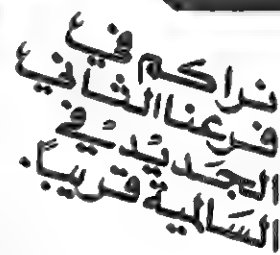 نراكم في
فرعنا الثاني
الجديد في
السالمية قريباً.